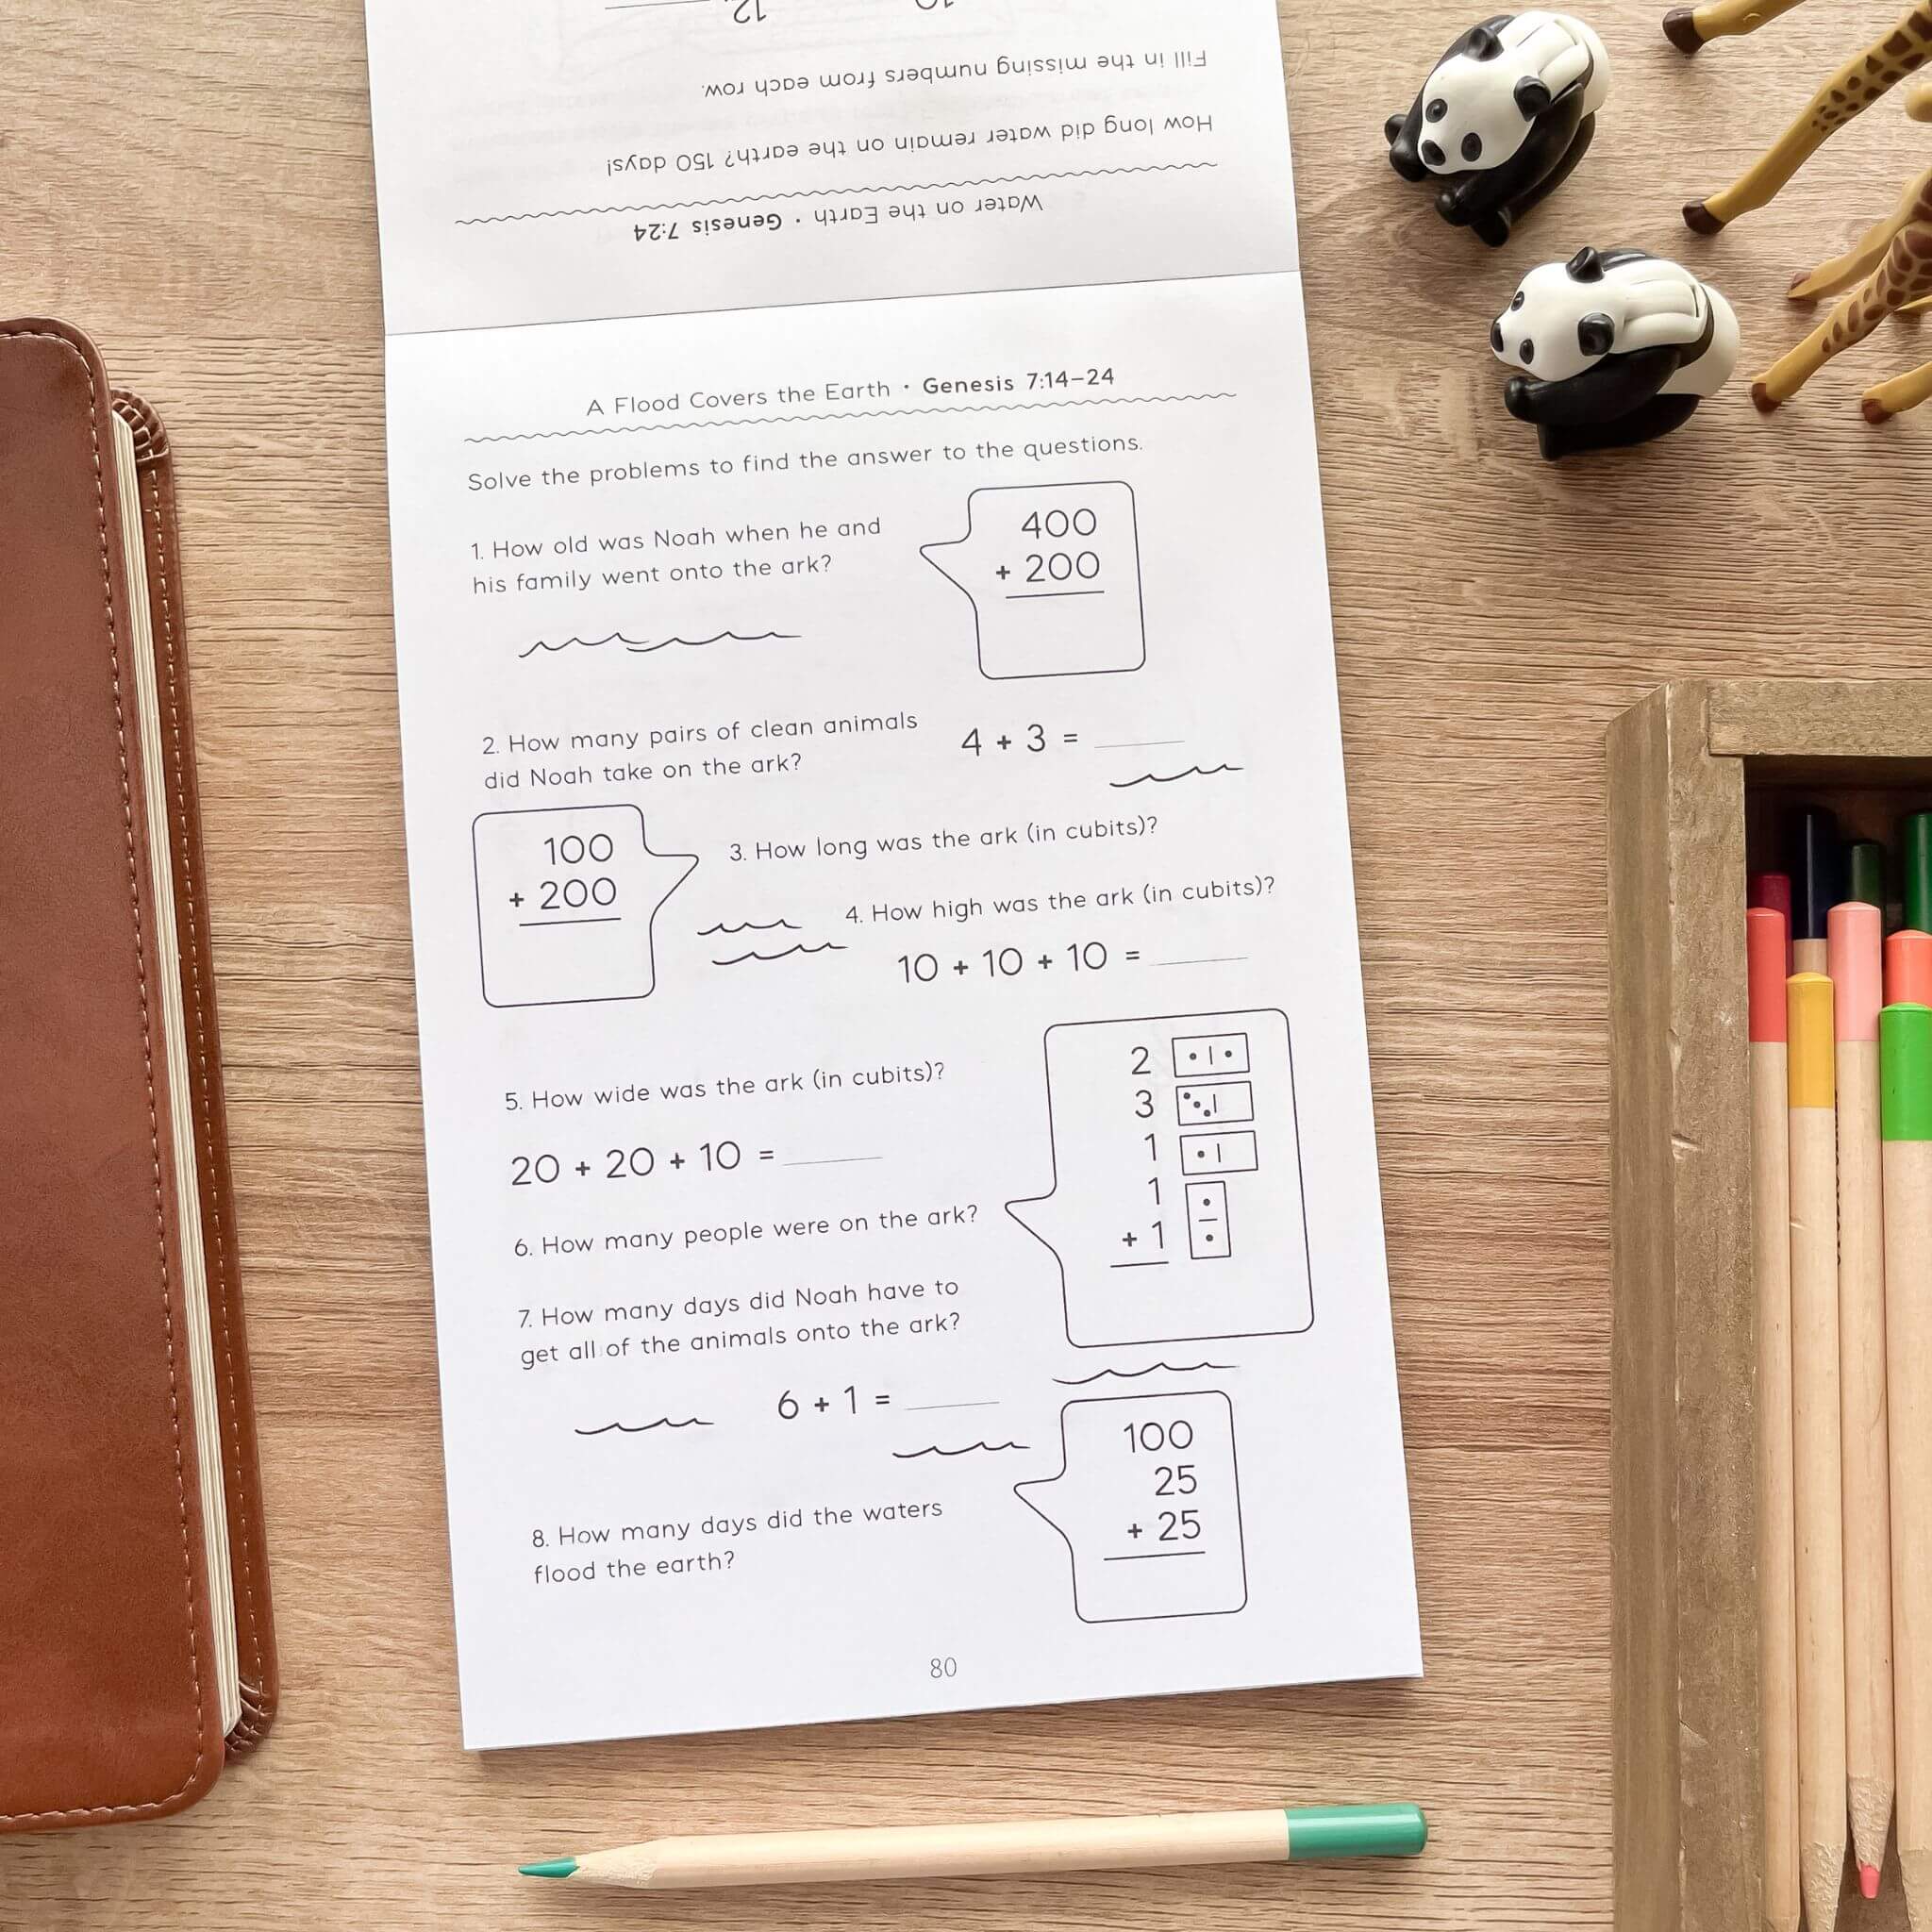 12
Fill in the missing numbers from each row.
How long did water remain on the earth? 150 days!
Water on the Earth • Genesis 7:24
A Flood Covers the Earth • Genesis 7:14–24
Solve the problems to find the answer to the questions.
1. How old was Noah when he and
his family went onto the ark?
400
+ 200
2. How many pairs of clean animals
did Noah take on the ark?
4 + 3 = ____
100
+ 200
3. How long was the ark (in cubits)?
4. How high was the ark (in cubits)?
10 + 10 + 10 = ____
5. How wide was the ark (in cubits)?
20 + 20 + 10 = ____
6. How many people were on the ark?
2
3
1
1
+ 1
7. How many days did Noah have to
get all of the animals onto the ark?
6 + 1 = ____
8. How many days did the waters
flood the earth?
100
25
+ 25
80